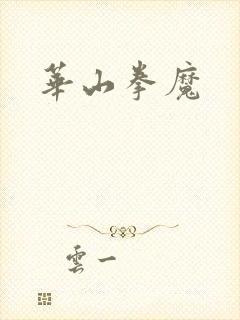 華山拳魔
雲一